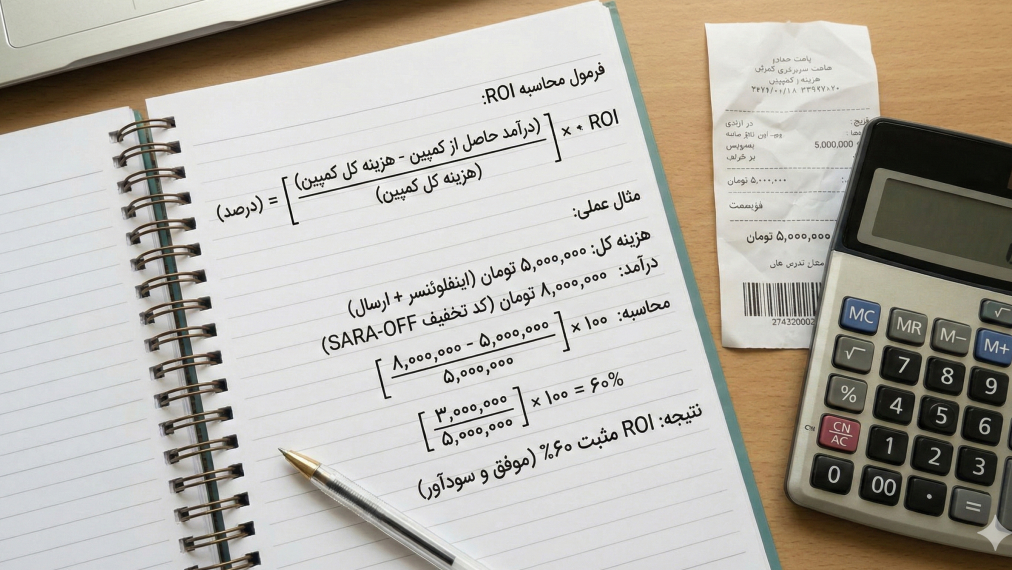 فرمول محاسبه ROI:
ROI * × [(درآمد حاصل از کمپین - هزینه کل کمپین) / (هزینه کل کمپین)] = (درصد)
مثال عملی:
هزینه کل: ۵,۰۰۰,۰۰۰ تومان (اینفلوئنسر + ارسال)
درآمد: ۸,۰۰۰,۰۰۰ تومان (کد تخفیف SARA-OFF)
محاسبه: [۸,۰۰۰,۰۰۰ - ۵,۰۰۰,۰۰۰ / ۵,۰۰۰,۰۰۰] × ۱۰۰
[۳,۰۰۰,۰۰۰ / ۵,۰۰۰,۰۰۰] × ۱۰۰ = ۶۰%
نتیجه: ROI مثبت ۶۰% (موفق و سودآور)
5,000,000
۵,۰۰۰,۰۰۰ تومان
۵,۰۰۰,۰۰۰ تومان
27432000
MC MR M− M+
√ 7 8 9
% 4 5 6
CN AC 1 2 3
0 00 . =